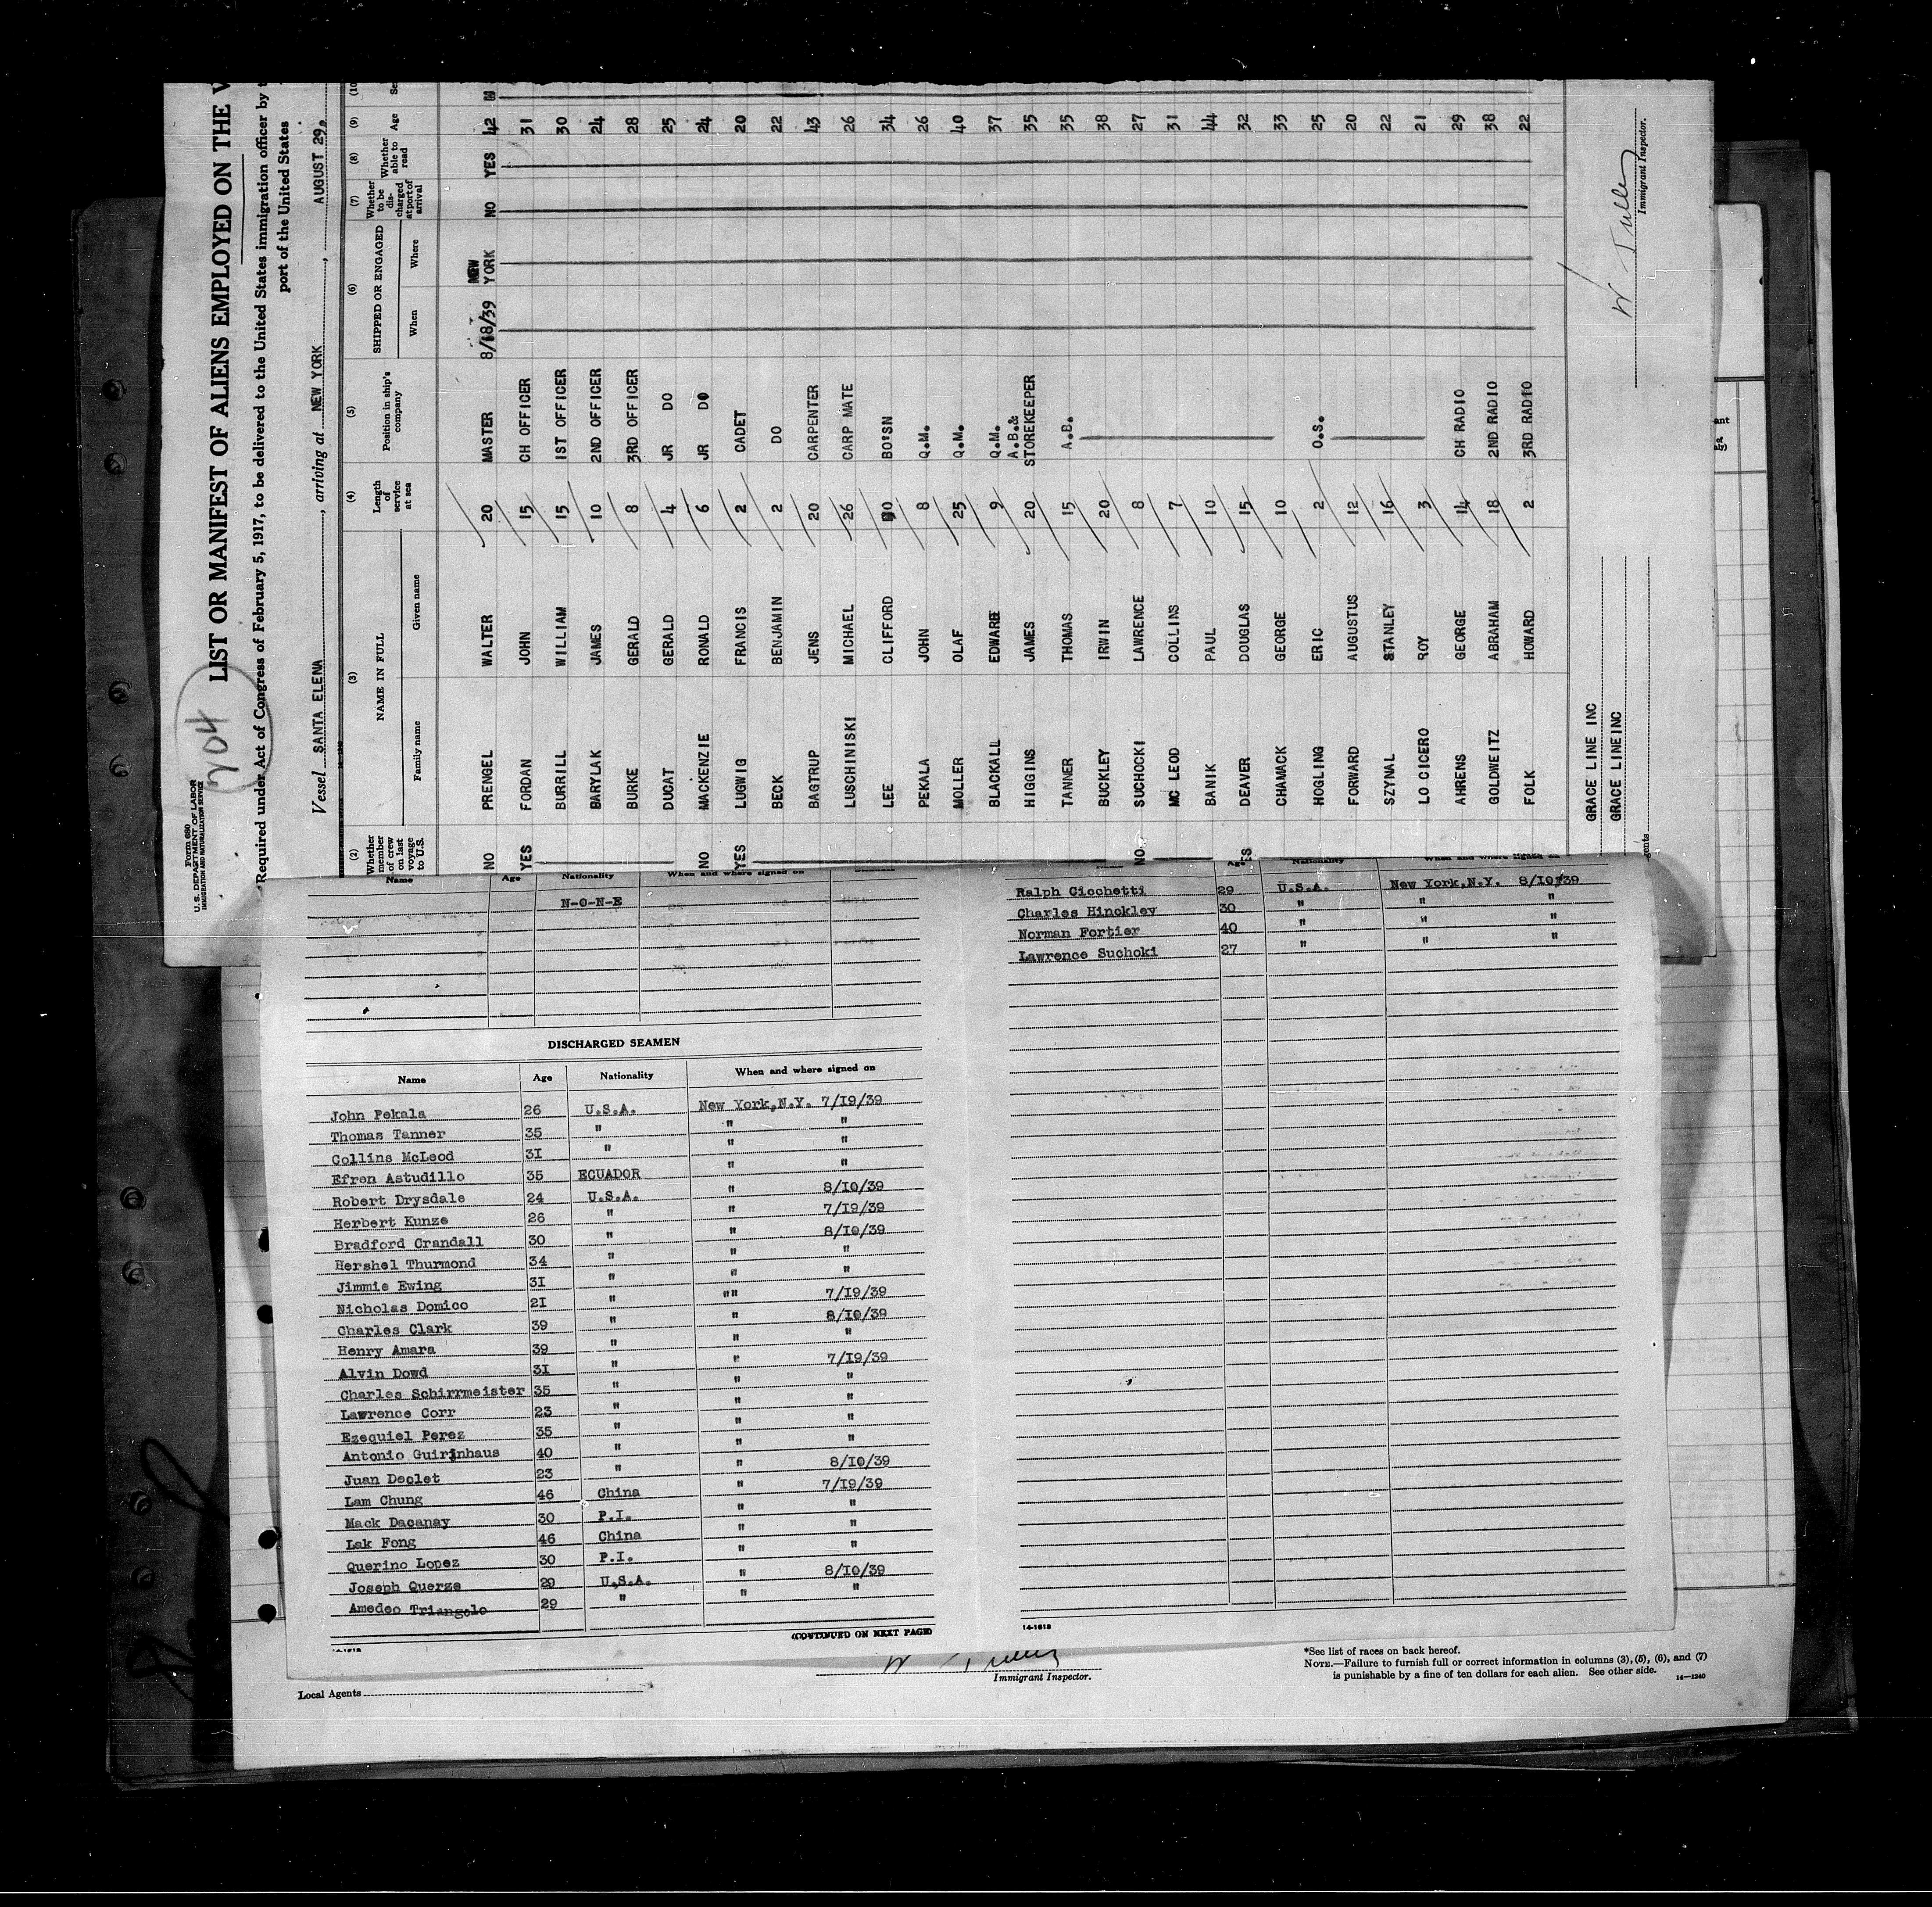 204
Form 680
U. S. DEPARTMENT OF LABOR
IMMIGRATION AND NATURALIZATION SERVICE
LIST OR MANIFEST OF ALIENS EMPLOYED ON THE V
Required under Act of Congress of February 5, 1917, to be delivered to the United States immigration officer by
port of the United States
Vessel SANTA ELENA, arriving at NEW YORK, AUGUST 29,
(2) Whether member of crew on last voyage to U.S. (3) NAME IN FULL Family name Given name (4) Length of service at sea (5) Position in ship's company (6) SHIPPED OR ENGAGED When Where (7) Whether to be discharged at port of arrival (8) Whether able to read (9) Age (10 Se
NO PRENGEL WALTER 20 MASTER NEW YORK NO YES 42 M
YES FORDAN JOHN 15 CH OFFICER 31
BURRILL WILLIAM 15 1ST OFFICER 30
BARYLAK JAMES 10 2ND OFFICER 24
BURKE GERALD 8 3RD OFFICER 28
DUCAT GERALD 4 JR DO 25
NO MACKENZIE RONALD 6 JR DO 24
YES LUGWIG FRANCIS 2 CADET 20
BECK BENJAMIN 2 DO 22
BAGTRUP JENS 20 CARPENTER 43
LUSCHINISKI MICHAEL 26 CARP MATE 26
LEE CLIFFORD BO'SN 34
PEKALA JOHN 8 Q.M. 26
MOLLER OLAF 25 Q.M. 40
BLACKALL EDWARD 9 Q.M. 37
HIGGINS JAMES 20 A.B.& STOREKEEPER 35
TANNER THOMAS 15 A.B. 35
BUCKLEY IRWIN 20 38
NO SUCHOCKI LAWRENCE 8 27
MC LEOD COLLINS 7 31
BANIK PAUL 10 44
DEAVER DOUGLAS 15 32
CHAMACK GEORGE 10 33
HOGLING ERIC 2 O.S. 25
FORWARD AUGUSTUS 12 20
SZYNAL STANLEY 16 22
LO CICERO ROY 3 21
AHRENS GEORGE 14 CH RADIO 29
GOLDWEITZ ABRAHAM 18 2ND RADIO 38
FOLK HOWARD 2 3RD RADIO 22
GRACE LINE INC
GRACE LINEINC
Immigrant Inspector.
Name Age Nationality When and where signed on
N-O-N-E
DISCHARGED SEAMEN
Name Age Nationality When and where signed on
John Pekala 26 U.S.A. New York,N.Y. 7/19/39
Thomas Tanner 35 " " "
Collins McLeod 31 " " "
Efren Astudillo 35 ECUADOR " "
Robert Drysdale 24 U.S.A. " 8/10/39
Herbert Kunze 26 " " 7/19/39
Bradford Crandall 30 " " 8/10/39
Hershel Thurmond 34 " " "
Jimmie Ewing 31 " " "
Nicholas Domico 21 " "" 7/19/39
Charles Clark 39 " " 8/10/39
Henry Amara 39 " " "
Alvin Dowd 31 " " 7/19/39
Charles Schirrmeister 35 " " "
Lawrence Corr 23 " " "
Ezequiel Perez 35 " " "
Antonio Guirinhaus 40 " " "
Juan Declet 23 " " 8/10/39
Lam Chung 46 China " 7/19/39
Mack Dacanay 30 P.I. " "
Lak Fong 46 China " "
Querino Lopez 30 P.I. " "
Joseph Querze 29 U.S.A. " 8/10/39
Amedeo Triangolo 29 " " "
(CONTINUED ON NEXT PAGE)
Ralph Cicchetti 29 U.S.A. New York,N.Y. 8/10/39
Charles Hinckley 30 " " "
Norman Fortier 40 " " "
Lawrence Suchoki 27 " " "
14-1618
Local Agents
Immigrant Inspector.
*See list of races on back hereof.
NOTE.—Failure to furnish full or correct information in columns (3), (5), (6), and (7)
is punishable by a fine of ten dollars for each alien. See other side.
14—1240